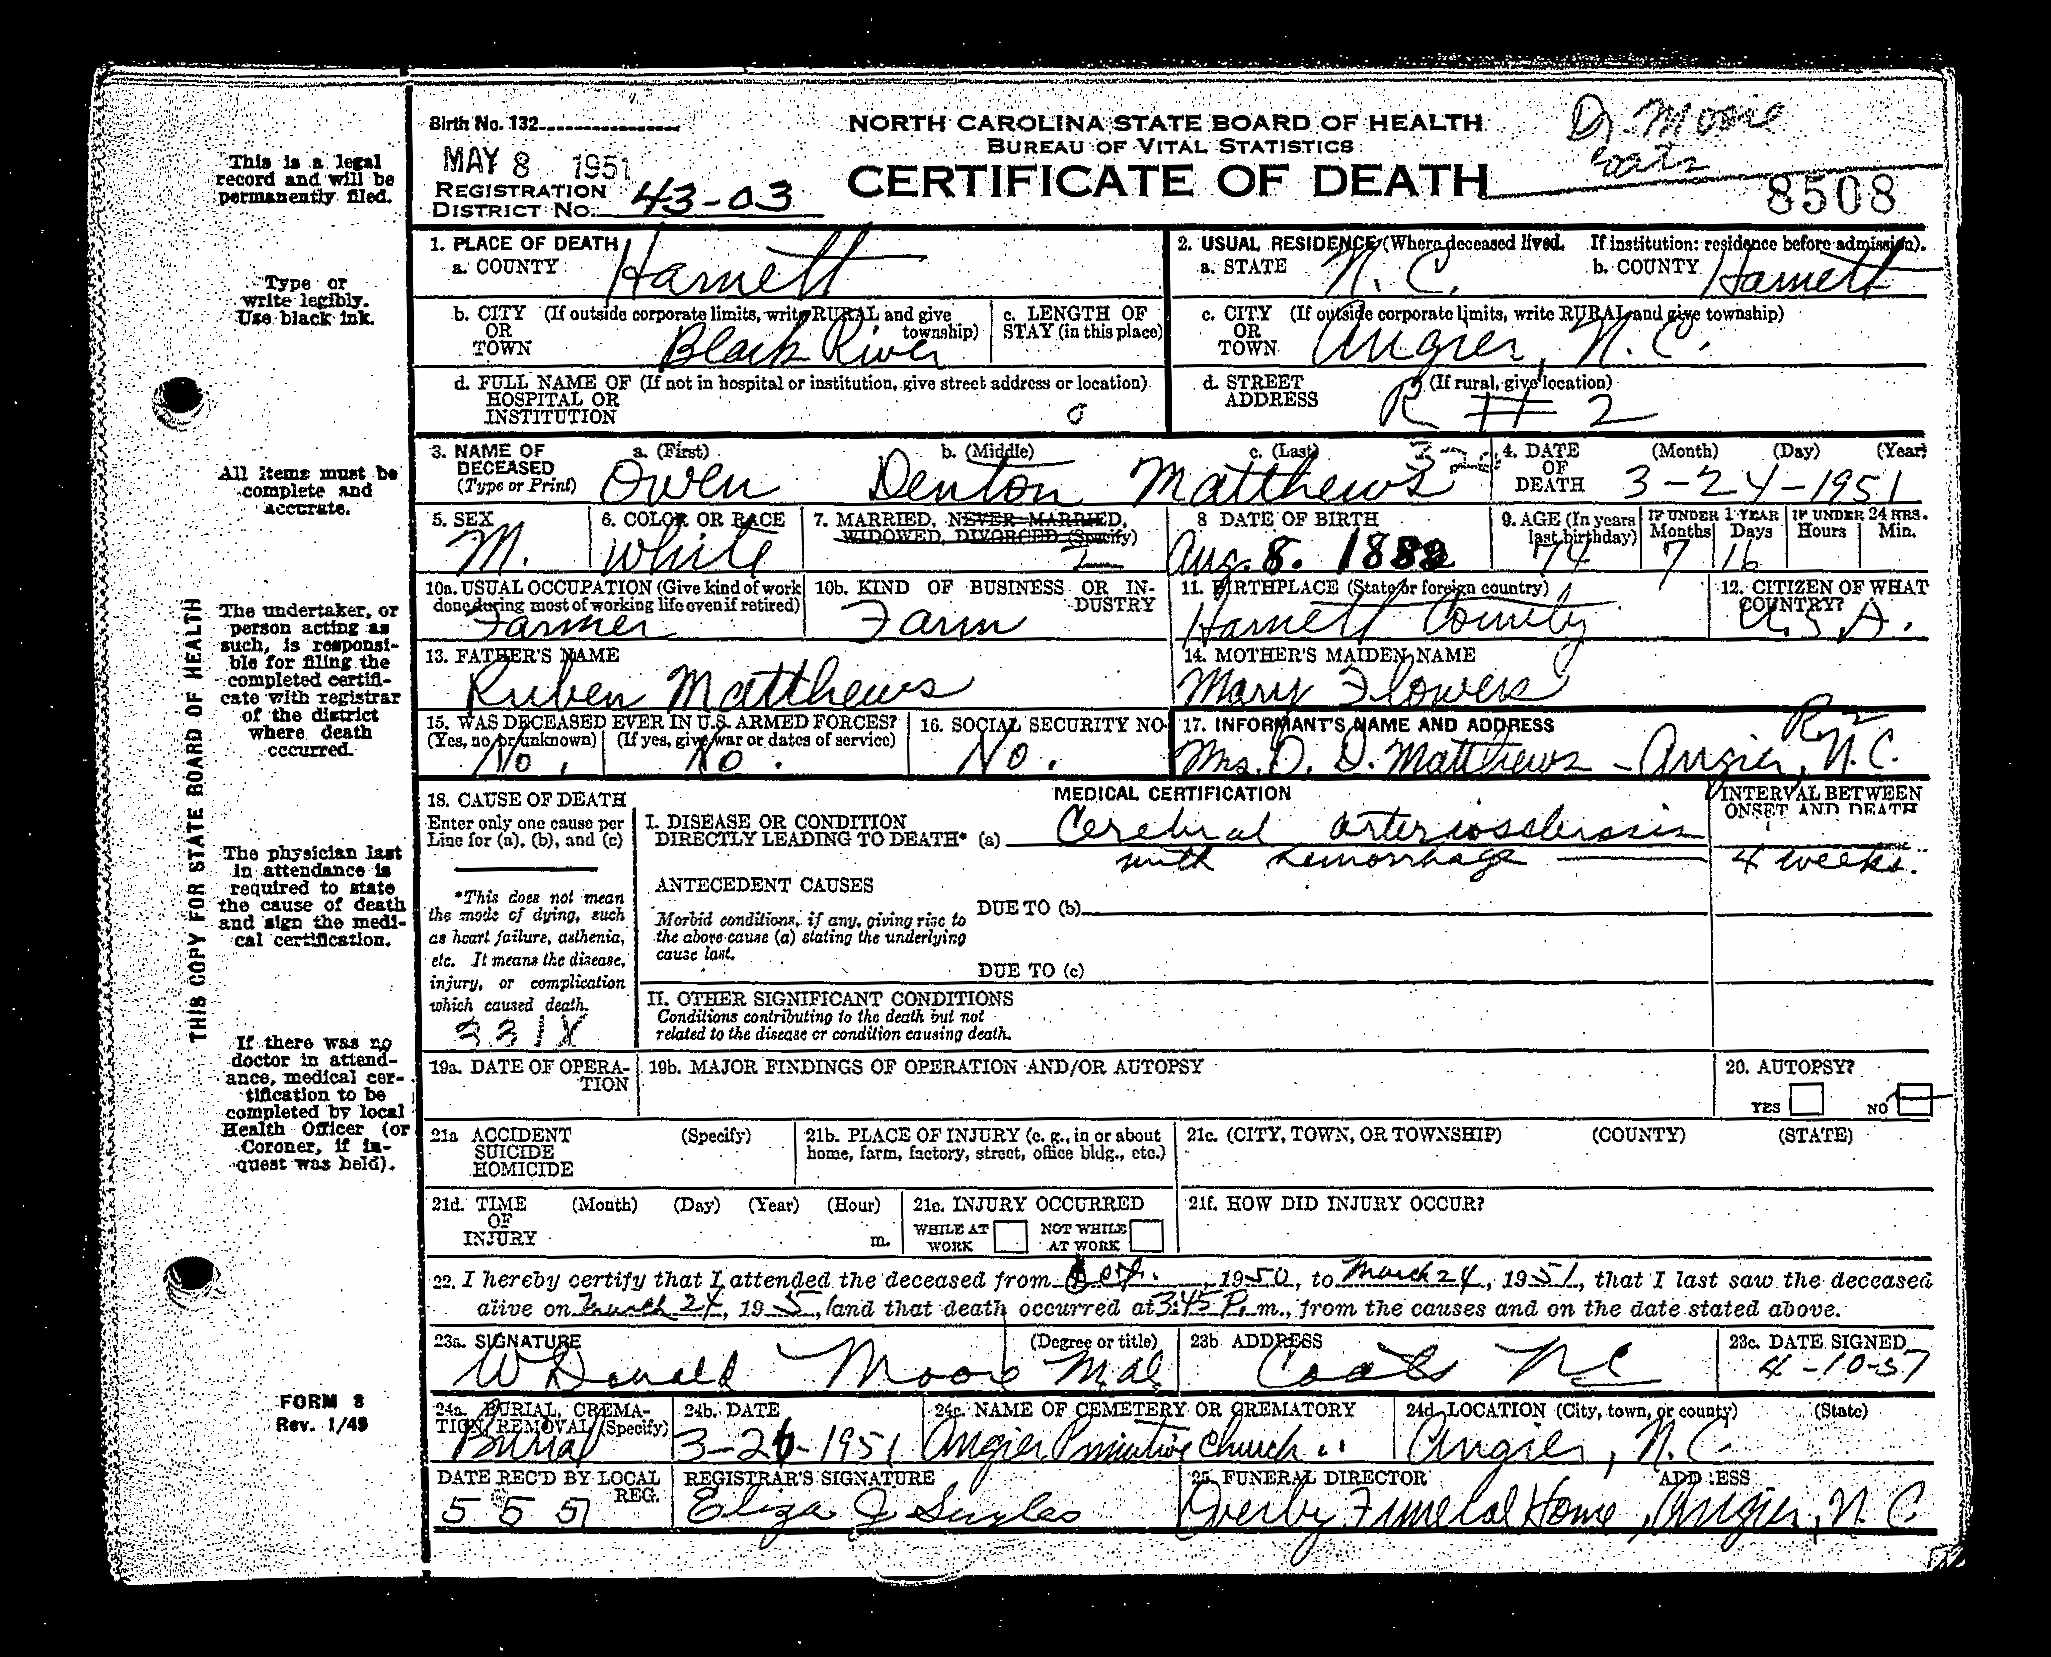 Birth No. 132
NORTH CAROLINA STATE BOARD OF HEALTH
BUREAU OF VITAL STATISTICS
CERTIFICATE OF DEATH
Dr. Moore
Coats
8508
MAY 8 1951
REGISTRATION DISTRICT NO. 43-03
This is a legal
record and will be
permanently filed.
Type or
write legibly.
Use black ink.
All items must be
complete and
accurate.
The undertaker, or
person acting as
such, is responsi-
ble for filing the
completed certifi-
cate with registrar
of the district
where death
occurred.
The physician last
in attendance is
required to state
the cause of death
and sign the medi-
cal certification.
If there was no
doctor in attend-
ance, medical cer-
tification to be
completed by local
Health Officer (or
Coroner, if in-
quest was held).
FORM 8
Rev. 1/49
THIS COPY FOR STATE BOARD OF HEALTH
1. PLACE OF DEATH
a. COUNTY Harnett
2. USUAL RESIDENCE (Where deceased lived. If institution: residence before admission).
a. STATE N. C. b. COUNTY Harnett
b. CITY OR TOWN (If outside corporate limits, write RURAL and give township) Black River
c. LENGTH OF STAY (in this place)
c. CITY OR TOWN (If outside corporate limits, write RURAL and give township) Angier, N. C.
d. FULL NAME OF HOSPITAL OR INSTITUTION (If not in hospital or institution, give street address or location) 0
d. STREET ADDRESS (If rural, give location) R # 2
3. NAME OF DECEASED (Type or Print) a. (First) Owen b. (Middle) Denton c. (Last) Matthews
4. DATE OF DEATH (Month) (Day) (Year) 3-24-1951
5. SEX M.
6. COLOR OR RACE White
7. MARRIED, NEVER MARRIED, WIDOWED, DIVORCED (Specify) 2
8 DATE OF BIRTH Aug. 8.
9. AGE (In years last birthday) 74
IF UNDER 1 YEAR Months 7 Days 16
IF UNDER 24 HRS. Hours Min.
10a. USUAL OCCUPATION (Give kind of work done during most of working life even if retired) Farmer
10b. KIND OF BUSINESS OR INDUSTRY Farm
11. BIRTHPLACE (State or foreign country) Harnett County
12. CITIZEN OF WHAT COUNTRY? U.S.A.
13. FATHER'S NAME Ruben Matthews
14. MOTHER'S MAIDEN NAME Mary Flowers
15. WAS DECEASED EVER IN U.S. ARMED FORCES?
(Yes, no, or unknown) No. (If yes, give war or dates of service) No.
16. SOCIAL SECURITY NO. No.
17. INFORMANT'S NAME AND ADDRESS R 2
Mrs. O. D. Matthews - Angier, N.C.
18. CAUSE OF DEATH
Enter only one cause per
Line for (a), (b), and (c)
*This does not mean
the mode of dying, such
as heart failure, asthenia,
etc. It means the disease,
injury, or complication
which caused death.
331X
MEDICAL CERTIFICATION
INTERVAL BETWEEN ONSET AND DEATH
I. DISEASE OR CONDITION
DIRECTLY LEADING TO DEATH* (a) Cerebral arteriosclerosis
with hemorrhage 4 weeks.
ANTECEDENT CAUSES
Morbid conditions, if any, giving rise to
the above cause (a) stating the underlying
cause last.
DUE TO (b)
DUE TO (c)
II. OTHER SIGNIFICANT CONDITIONS
Conditions contributing to the death but not
related to the disease or condition causing death.
19a. DATE OF OPERATION
19b. MAJOR FINDINGS OF OPERATION AND/OR AUTOPSY
20. AUTOPSY?
YES NO
21a ACCIDENT SUICIDE HOMICIDE (Specify)
21b. PLACE OF INJURY (e. g., in or about home, farm, factory, street, office bldg., etc.)
21c. (CITY, TOWN, OR TOWNSHIP) (COUNTY) (STATE)
21d. TIME OF INJURY (Month) (Day) (Year) (Hour) m.
21e. INJURY OCCURRED
WHILE AT WORK NOT WHILE AT WORK
21f. HOW DID INJURY OCCUR?
22. I hereby certify that I attended the deceased from , 1950, to March 24, 1951, that I last saw the deceased
alive on March 24, 195 , and that death occurred at 3:45 P. m., from the causes and on the date stated above.
23a. SIGNATURE (Degree or title) W Donald Moore M.D.
23b ADDRESS Coats NC
23c. DATE SIGNED 4-10-51
24a. BURIAL, CREMATION, REMOVAL (Specify) Burial
24b. DATE 3-26-1951
24c. NAME OF CEMETERY OR CREMATORY Angier Primitive Church
24d. LOCATION (City, town, or county) (State) Angier, N. C.
DATE REC'D BY LOCAL REG. 5 5 51
REGISTRAR'S SIGNATURE Eliza J
25. FUNERAL DIRECTOR ADDRESS
Overby Funeral Home, Angier, N. C.